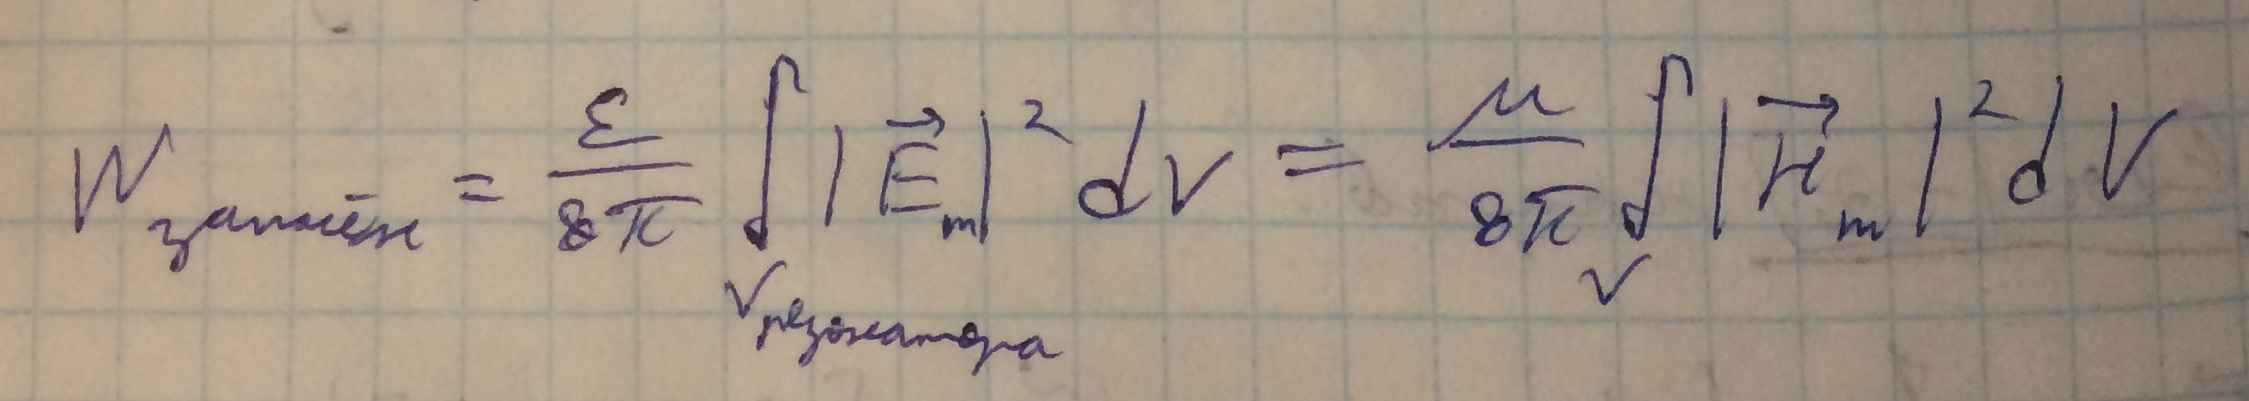 W_{запасён} = \frac{ε}{8π} \int_{V_{резонатора}} |\vec{E}_m|^2 dV = \frac{μ}{8π} \int_V |\vec{H}_m|^2 dV